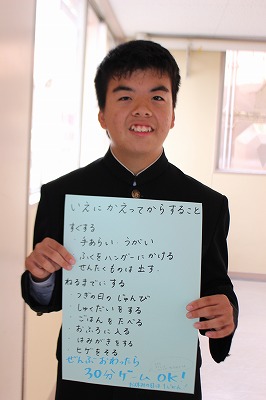 いえにかえってからすること
すぐする
・手あらい・うがい
・ふくをハンガーにかける
・せんたくものは出す。
ねるまでにする
・つぎの日のじゅんび
・しゅくだいをする
・ごはんをたべる
・おふろに入る
・はみがきをする
・ヒゲをそる
ぜんぶおわったら
30分ゲームOK!